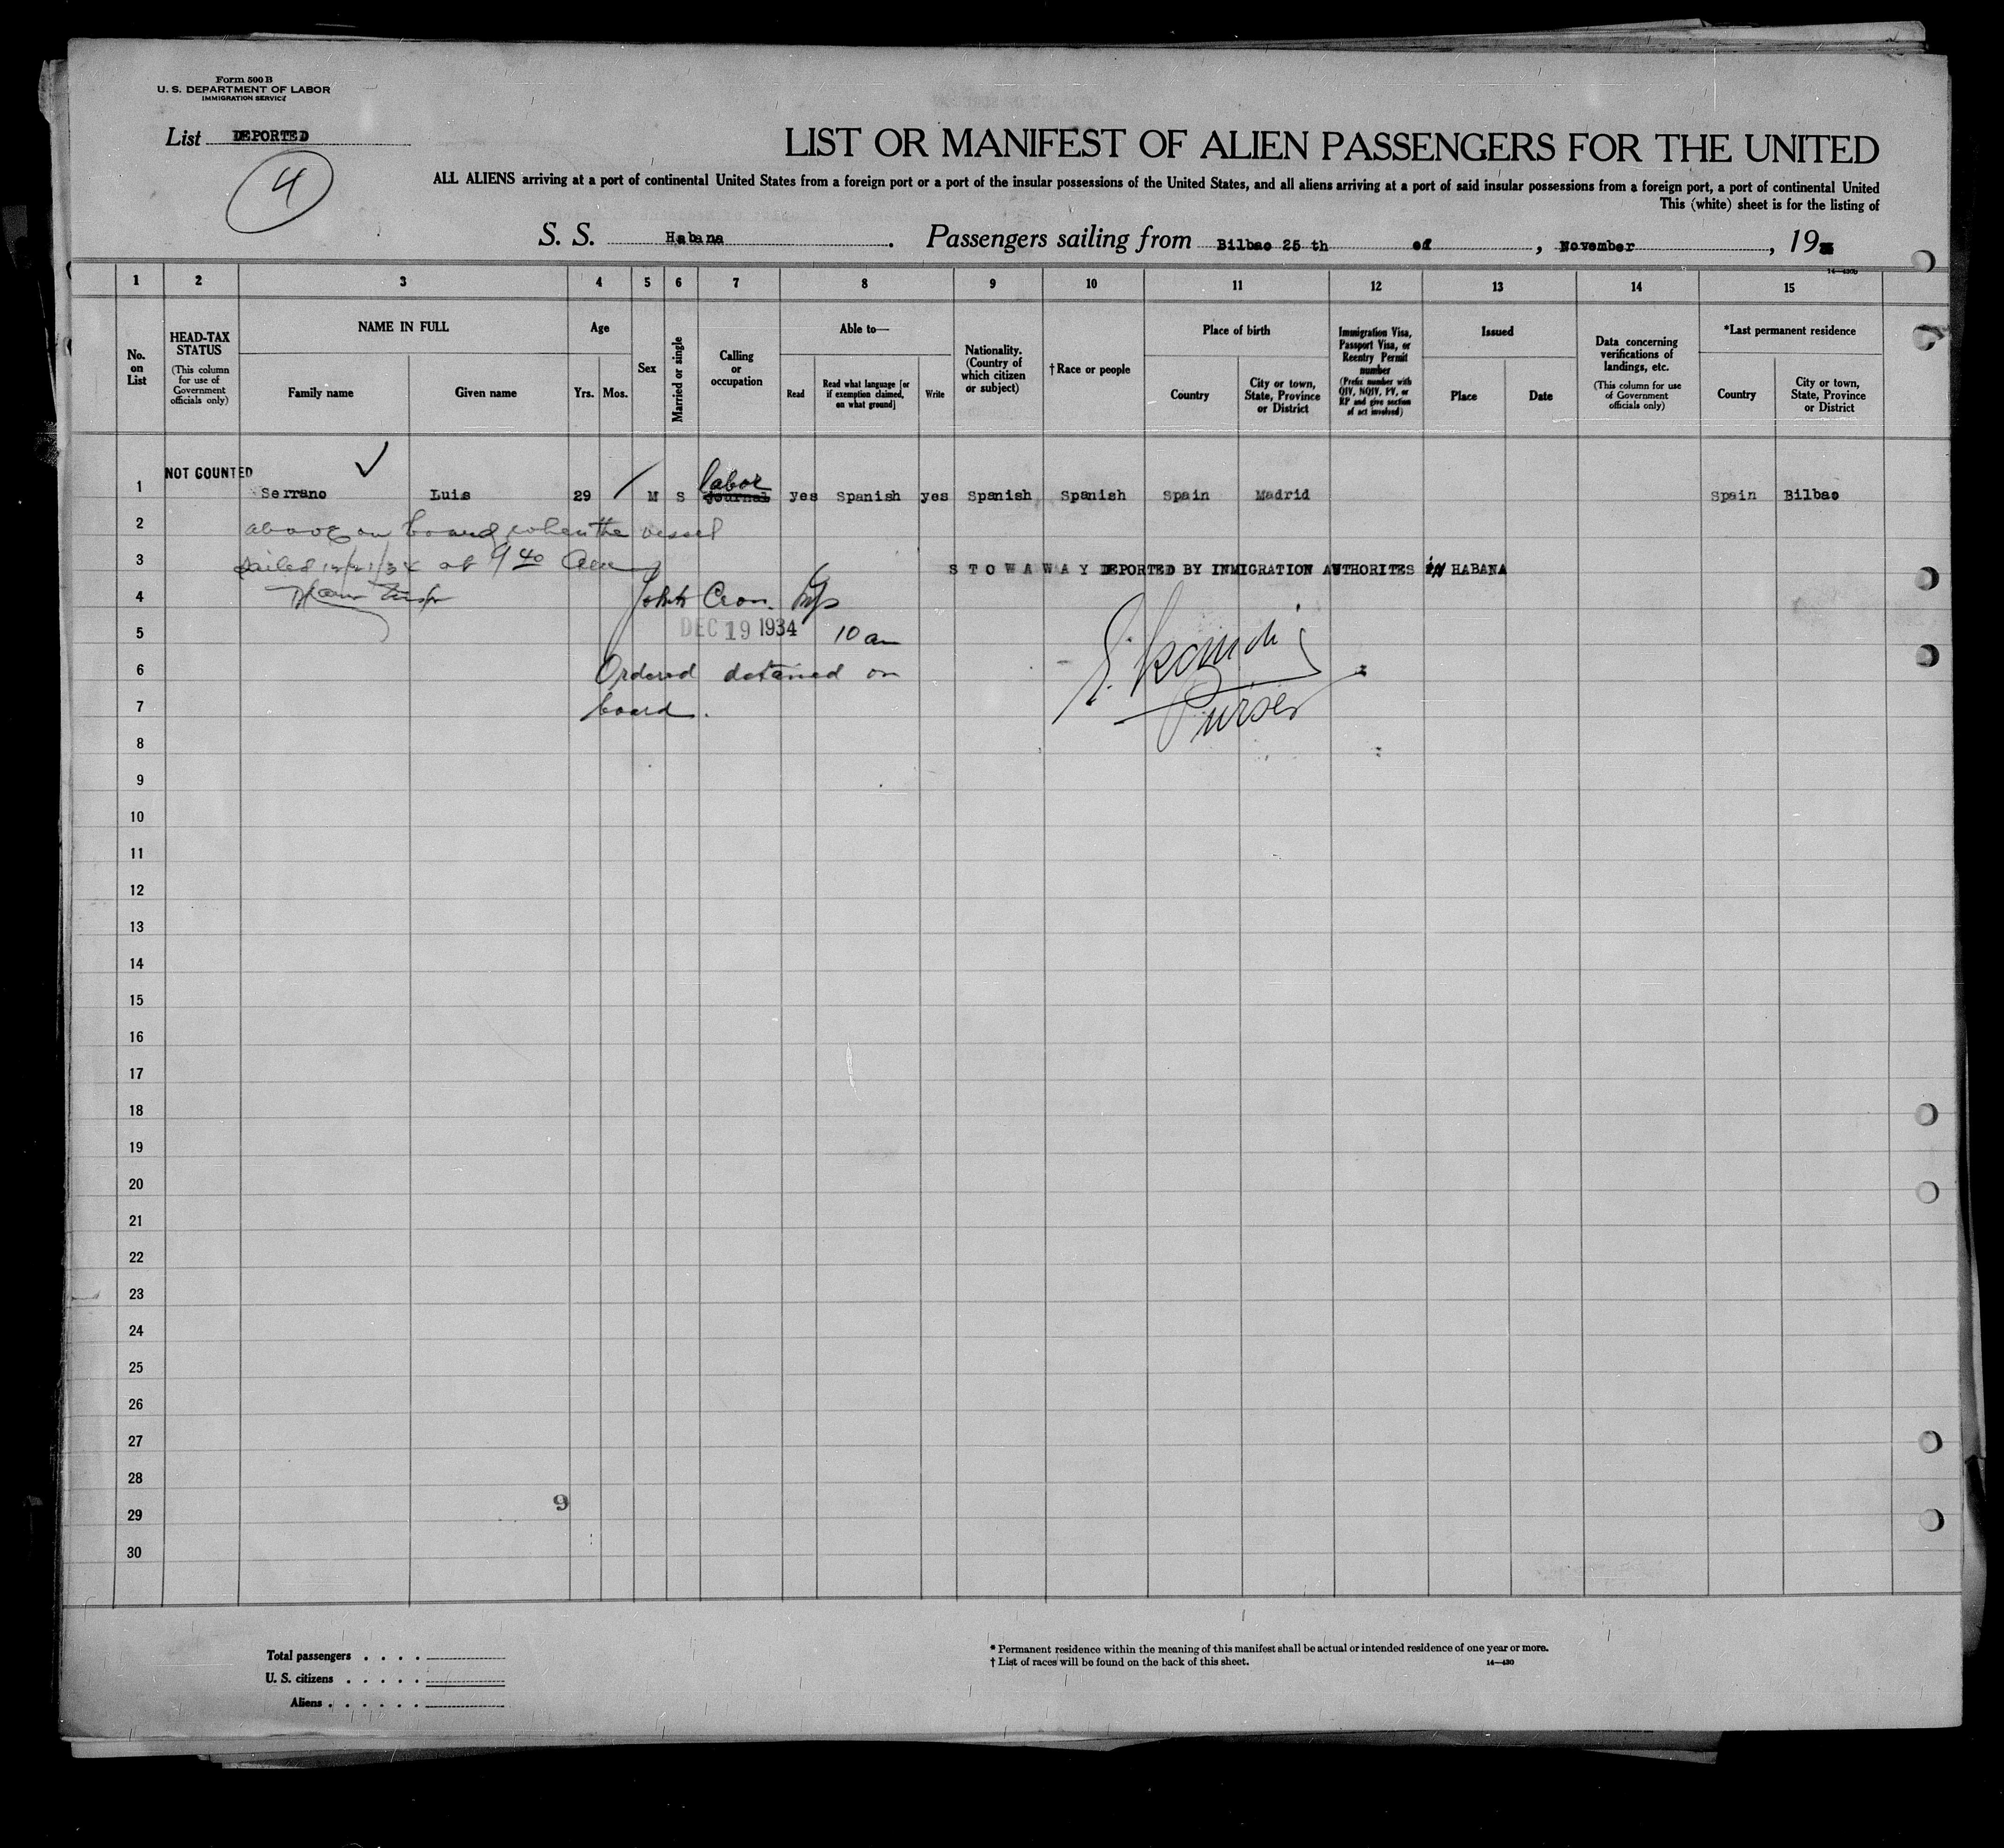 Form 500 B
U. S. DEPARTMENT OF LABOR
IMMIGRATION SERVICE
List DEPORTED
4
LIST OR MANIFEST OF ALIEN PASSENGERS FOR THE UNITED
ALL ALIENS arriving at a port of continental United States from a foreign port or a port of the insular possessions of the United States, and all aliens arriving at a port of said insular possessions from a foreign port, a port of continental United
This (white) sheet is for the listing of
S. S. Habana. Passengers sailing from Bilbao 25 th of, November, 19
1 2 3 4 5 6 7 8 9 10 11 12 13 14 15
No. on List
HEAD-TAX STATUS (This column for use of Government officials only)
NAME IN FULL
Family name
Given name
Age
Yrs. Mos.
Sex
Married or single
Calling or occupation
Able to—
Read
Read what language [or if exemption claimed, on what ground]
Write
Nationality. (Country of which citizen or subject)
† Race or people
Place of birth
Country
City or town, State, Province or District
Immigration Visa, Passport Visa, or Reentry Permit number (Prefix number with QIV, NQIV, PV, or RP and give section of act involved)
Issued
Place
Date
Data concerning verifications of landings, etc. (This column for use of Government officials only)
*Last permanent residence
Country
City or town, State, Province or District
NOT COUNTED
labor
1 Serrano Luis 29 M S Journal yes Spanish yes Spanish Spanish Spain Madrid Spain Bilbao
2 above on board when the vessel
3 sailed at 9 40 am
STOWAWAY DEPORTED BY INMIGRATION AUTHORITES in HABANA
4
DEC 19 1934 10 am
5
6 Ordered detained on
7 board.
Purser
8
9
10
11
12
13
14
15
16
17
18
19
20
21
22
23
24
25
26
27
28
9
29
30
Total passengers
U. S. citizens
Aliens
* Permanent residence within the meaning of this manifest shall be actual or intended residence of one year or more.
† List of races will be found on the back of this sheet.
14—430